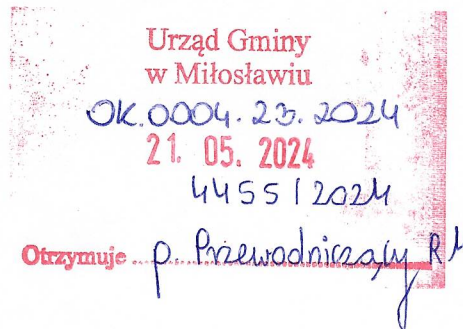 Urząd Gminy
w Miłosławiu
OK.0004.23.2024
21. 05. 2024
4455/2024
Otrzymuje p. Przewodniczący R